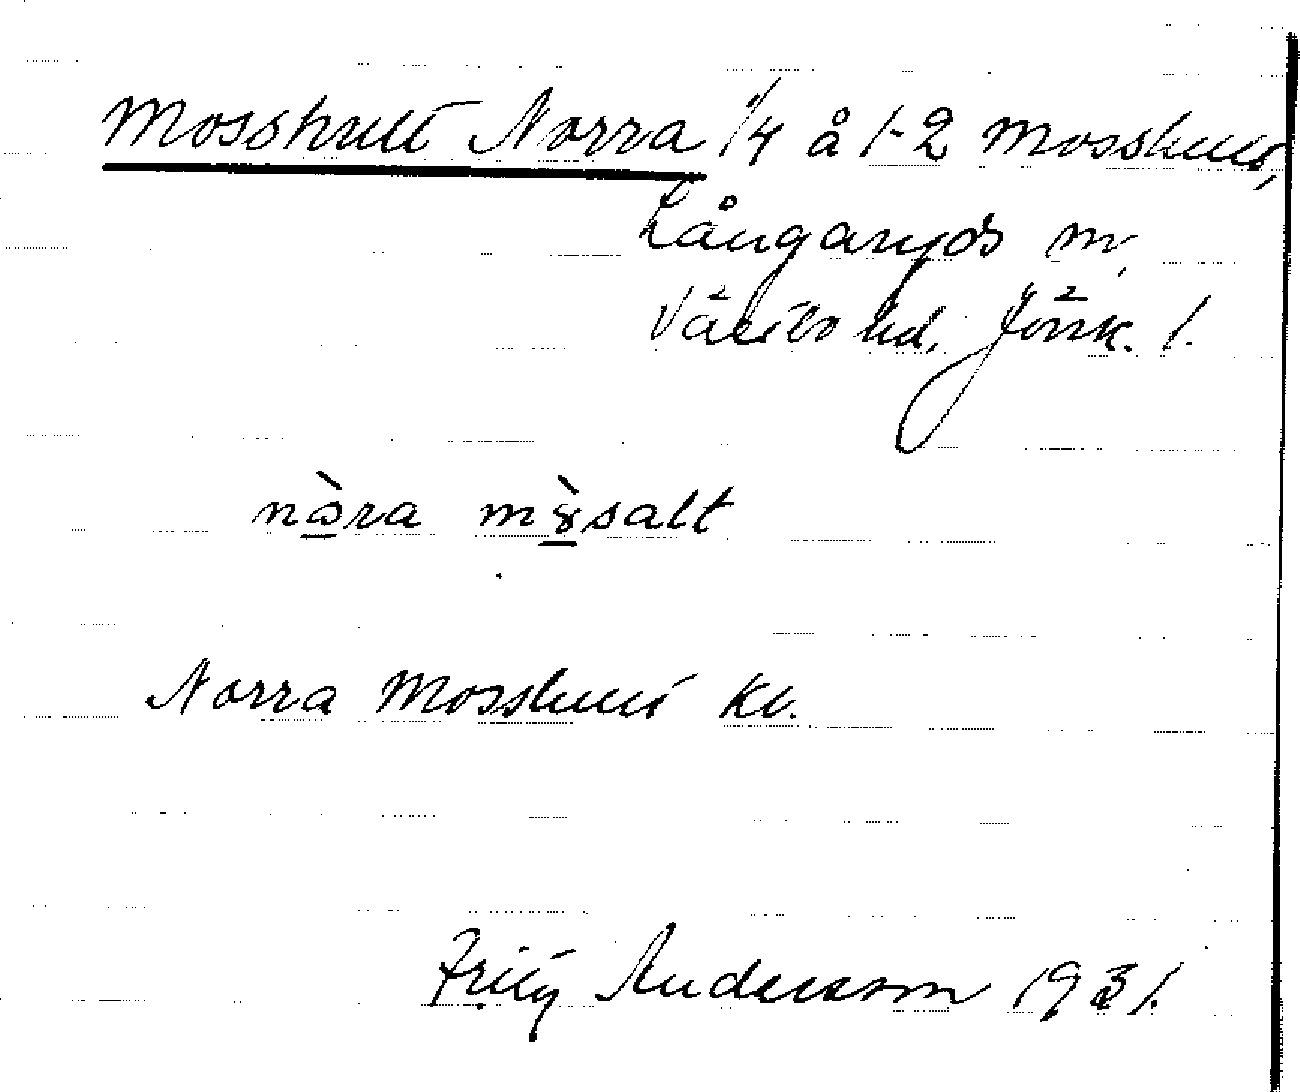 Mosshult Norra 1/4 å 1-2 Mosshult,
Långaryds sn,
Västbo hd, Jönk. l.
nə̀ra mɤ̀salt
Norra Mosshult
Fritz Andersson 1931.